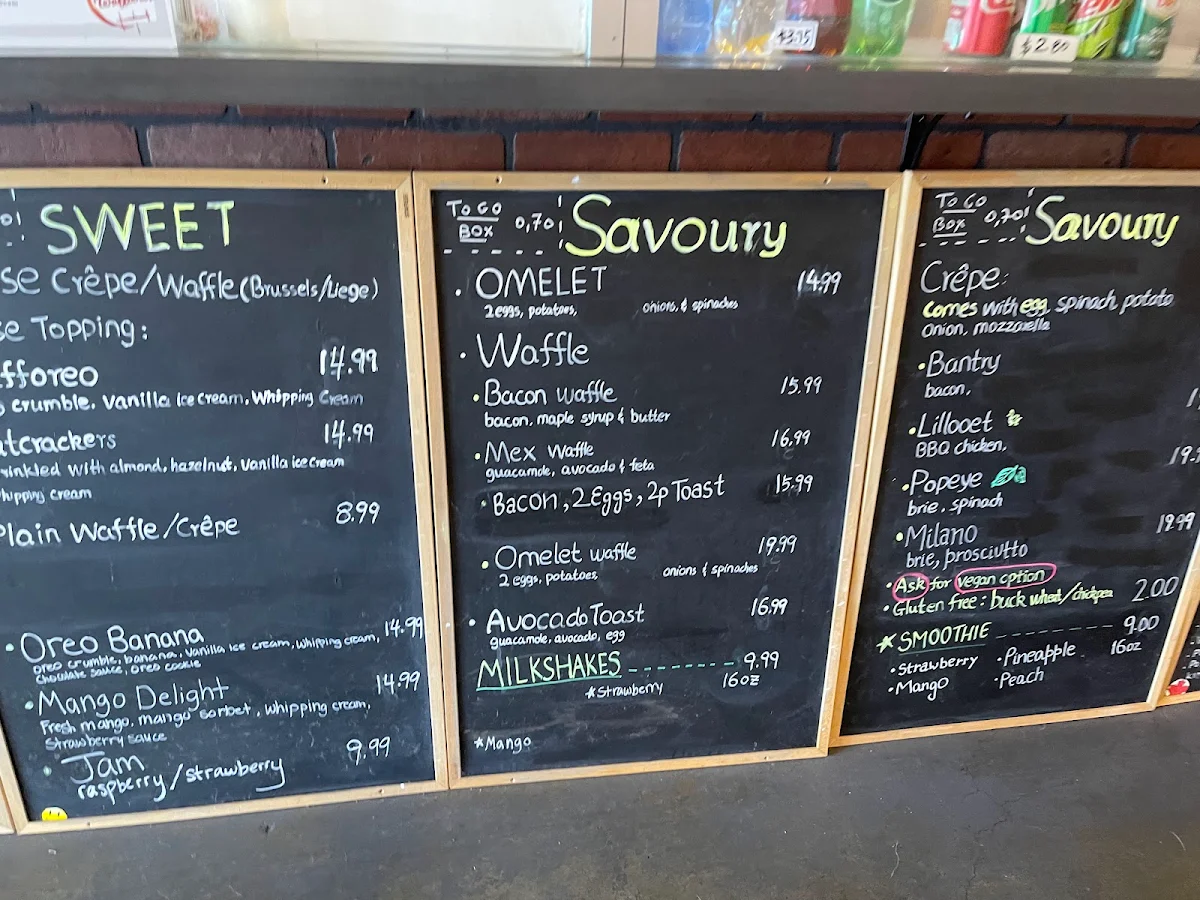 $3.75
$2.80
SWEET
se Crêpe/Waffle (Brussels/Liege)
se Topping:
fforeo 14.99
crumble, vanilla ice cream, Whipping Cream
tcrackers 14.99
rinkled with almond, hazelnut, vanilla ice cream
hipping cream
Plain Waffle/Crêpe 8.99
• Oreo Banana 14.99
oreo crumble, banana, vanilla ice cream, whipping cream,
chocolate sauce, oreo cookie
• Mango Delight 14.99
Fresh mango, mango sorbet, whipping cream,
strawberry sauce
• Jam 9.99
raspberry/strawberry
TO GO
BOX 0,70
Savoury
• OMELET 14.99
2 eggs, potatoes, onions, & spinaches
• Waffle
• Bacon waffle 15.99
bacon, maple syrup & butter
• Mex waffle 16.99
guacamole, avocado & feta
• Bacon, 2 Eggs, 2p Toast 15.99
• Omelet waffle 19.99
2 eggs, potatoes, onions & spinaches
• Avocado Toast 16.99
guacamole, avocado, egg
MILKSHAKES 9.99
*Strawberry 16oz
*Mango
TO GO
BOX 0,70
Savoury
Crêpe:
comes with egg, spinach, potato
onion, mozzarella
• Bantry
bacon,
• Lillooet
BBQ chicken,
• Popeye
brie, spinach
• Milano 19.99
brie, prosciutto
• Ask for vegan option
• Gluten free: buck wheat/chickpea 2.00
* SMOOTHIE 9.00
• Strawberry • Pineapple 16oz
• Mango • Peach